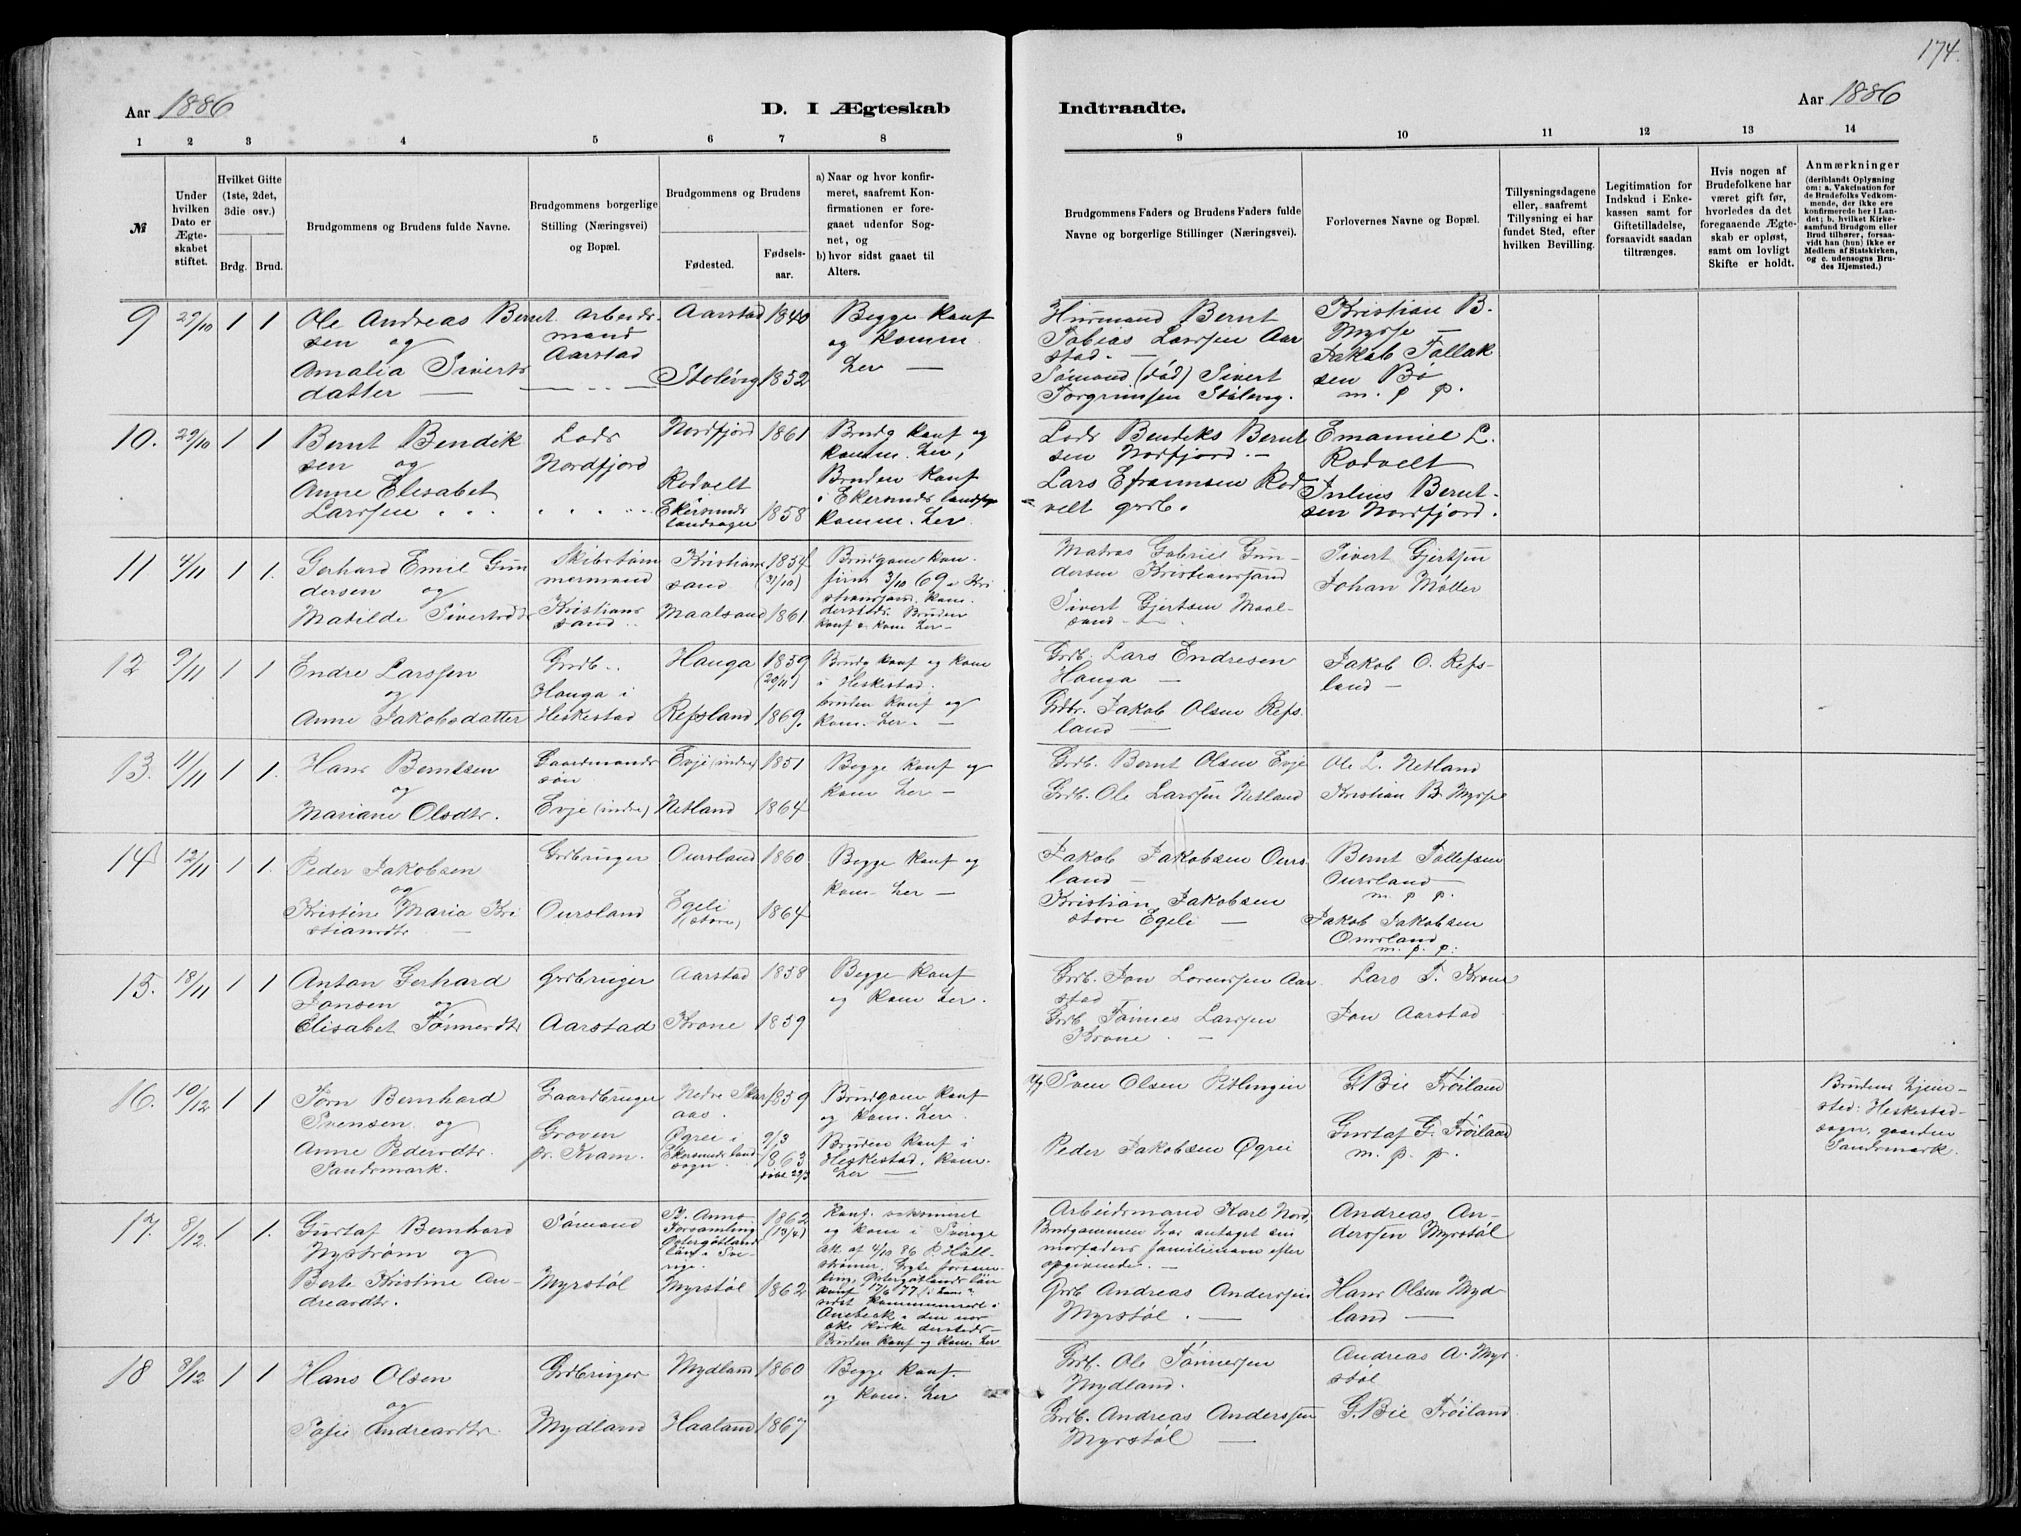 174.
Aar 1886
D. I Ægteskab
Indtraadte.
Aar 1886
1 2 3 4 5 6 7 8 9 10 11 12 13 14
№
Under hvilken Dato er Ægteskabet stiftet.
Hvilket Gifte (1ste, 2det, 3die osv.)
Brdg. Brud.
Brudgommens og Brudens fulde Navne.
Brudgommens borgerlige Stilling (Næringsvei) og Bopæl.
Brudgommens og Brudens
Fødested.
Fødselsaar.
a) Naar og hvor konfirmeret, saafremt Konfirmationen er foregaaet udenfor Sognet, og
b) hvor sidst gaaet til Alters.
Brudgommens Faders og Brudens Faders fulde Navne og borgerlige Stillinger (Næringsvei).
Forlovernes Navne og Bopæl.
Tillysningsdagene eller, saafremt Tillysning ei har fundet Sted, efter hvilken Bevilling.
Legitimation for Indskud i Enkekassen samt for Giftetilladelse, forsaavidt saadan tiltrænges.
Hvis nogen af Brudefolkene har været gift før, hvorledes da det foregaaende Ægteskab er opløst, samt om lovligt Skifte er holdt.
Anmærkninger
(deriblandt Oplysning om: a. Vakcination for de Brudefolks Vedkommende, der ikke ere konfirmerede her i Landet; b. hvilket Kirkesamfund Brudgom eller Brud tilhører, forsaavidt han (hun) ikke er Medlem af Statskirken, og c. udensogns Brudes Hjemsted.)
9 29/10 1 1
Ole Andreas Bernt
sen og
Amalia Siverts
datter —
Arbeids
mand
Aarstad
Aarstad 1840
Stolsvig 1852
Begge konf
og komm.
her —
Husmand Bernt
Tobias Larssen Aar
stad. —
Sømand (død) Sivert
Torgrimsen Stolsvig.
Kristian B.
Mysse —
Jakob Tollak
sen Bø
m. p. p.
10. 29/10 1 1
Bernt Bendik
sen og
Anne Elisabet
Larssen
Lods
Nordfjord
Nordfjord 1861
Rodvelt
Ekersunds
landsogn 1858
Brudg konf og
komm. her,
Bruden konf
i Ekersunds landsogn
komm. her.
Lods Bendiks Bernt
sen Norfjord. —
Lars Efraimsen Rod
velt grdb.
Emanuel L.
Rodvelt
Julius Bernt-
sen Nordfjord.
11 4/11 1 1.
Gerhard Emil Gun
dersen og
Matilde Sivertsdtr
Skibstøm
mermand
Kristian
sand
Kristian
sand 1854 (31/10)
Maalsand 1861
Brudgom kon
firm 3/10 69 i Kri
stiansand, kom.
dersteds. Bruden
konf o. kom her —
Matros Gabriel Gun-
dersen Kristianssand
Sivert Gjertsen Maal-
sand
Sivert Gjertsen
Johan Møller
12 9/11 1 1
Endre Larssen
og
Anne Jakobsdatter
Grdb.
Hauga i
Heskestad
Hauga 1859 (20/11)
Refsland 1869.
Brudg konf og kom
i Heskestad.
bruden konf og
kom. her. —
Grdb. Lars Endresen
Hauga —
Grdbr. Jakob Olsen Refs
land —
Jakob O. Refs-
land —
13. 11/11 1 1.
Hans Berntsen
og
Mariane Olsdtr.
Gaardmands
søn
Evje (indre)
Evje (indre) 1851
Netland 1864
Begge konf og
kom her —
Grdb. Bernt Olsen Evje
Grdb. Ole Larssen Netland
Ole L. Netland
Kristian B Mysse
14 12/11 1 1.
Peder Jakobsen
og
Kristine Maria Kri
stiansdtr. —
Grdbruger
Oursland
Oursland 1860
Egeli
(store) 1864
Begge konf og
kom. her —
Jakob Jakobsen Ours
land —
Kristian Jakobsen
store Egeli —
Bernt Tollefsen
Oursland
m. p. p.
Jakob Jakobsen
Oursland
m. p. p.
15. 18/11 1 1
Anton Gerhard
Jonsen og
Elisabet Tønnesdtr
Grdbruger
Aarstad
Aarstad 1858
Krone 1859
Begge konf
og kom her.
Grdb. Jon Lorentssen Aar
stad
Grdb Tønnes Larssen
Krone. —
Lars T. Krone
Jon Aarstad
16. 10/12 1 1
Jørn Bernhard
Svensen og
Anne Pedersdtr.
Sandsmark.
Gaardbruger
Groven
pr. Kvam.
Nedre Skar
aas 1859
Øgrei i
Ekersunds land
sogn. 9/3 1863
Brudgom konf
og kom. her.
Bruden konf i
Heskestad, kom.
her —
Sven Olsen Petlingen
Peder Jakobsen Øgrei
G. Bie Frøiland
Gustaf G. Frøiland
m. p. p.
Brudens hjem-
sted: Heskestad-
sogn, gaarden
Sandsmark.
17. 8/12. 1 1.
Gustaf Bernhard
Nystrøm og
Berte Kristine An-
dreasdtr.
Sømand
Myrstøl
St. Anna
Forsamling
Østergøtland
län i Sve-
rige. 1862 (13/4)
Myrstøl 1862
konf. vaksineret
og kom i Sverige
att. af 4/10 86 P. Häll-
strømer. forsam-
ling, Østergøtlands län
konf 17/6 77
sidst kommuneret i
i den nor
ske kirke dersteds. —
Bruden konf og kom. her
Arbeidsmand Karl Nord,
Brudgommen har antaget sin
morfaders familienavn efter
opgivende. —
Grdb Andreas Anderssen
Myrstøl. —
Andreas An-
derssen Myrstøl
Hans Olsen Myd-
land —
18 8/12 1 1
Hans Olsen
og
Sofie Andreasdtr.
Grdbruger
Mydland
Mydland 1860
Haaland 1867
Begge konf.
og kom. her
Grdb. Ole Tønnessen
Mydland.
Grdb. Andreas Anderssen
Myrstøl —
Andreas A. Myr
støl
G. Bie Frøiland